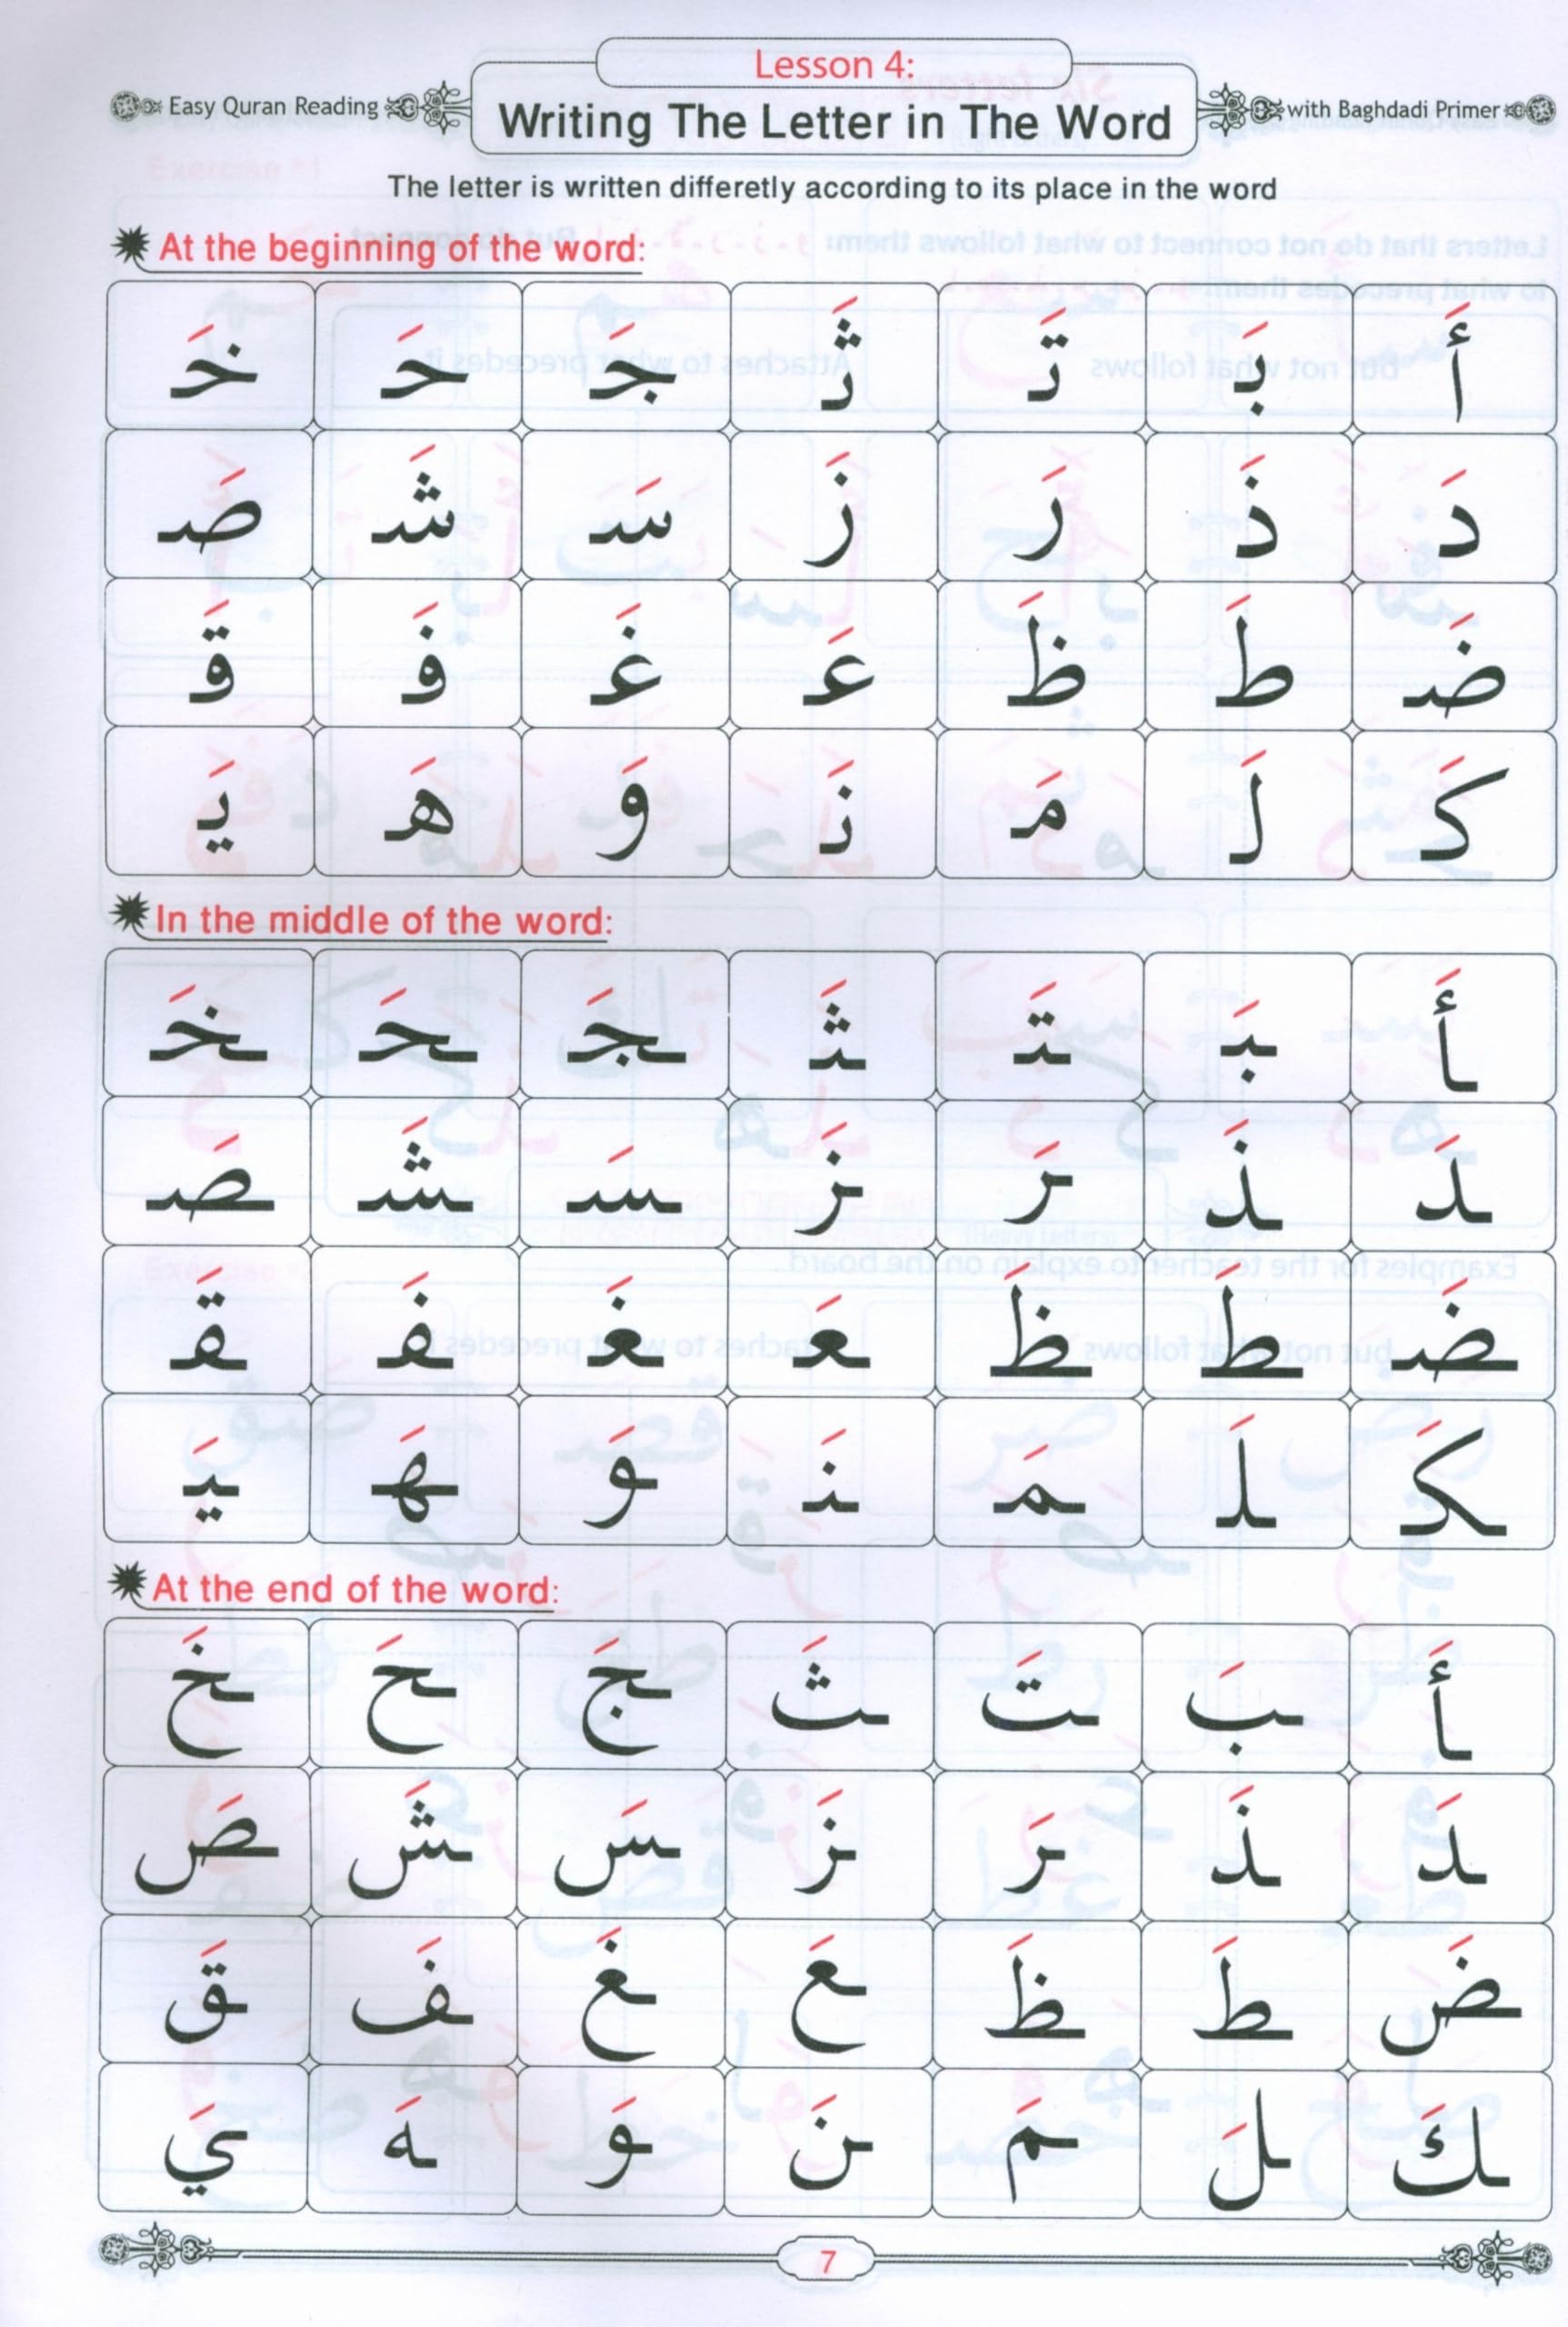 Lesson 4:
Easy Quran Reading
Writing The Letter in The Word
with Baghdadi Primer
The letter is written differetly according to its place in the word
At the beginning of the word:
أَ بَـ تَـ ثَـ جَـ حَـ خَـ
دَ ذَ رَ زَ سَـ شَـ صَـ
ضَـ طَـ ظَـ عَـ غَـ فَـ قَـ
كَـ لَـ مَـ نَـ وَ هَـ يَـ
In the middle of the word:
ـأَ ـبَـ ـتَـ ـثَـ ـجَـ ـحَـ ـخَـ
ـدَ ـذَ ـرَ ـزَ ـسَـ ـشَـ ـصَـ
ـضَـ ـطَـ ـظَـ ـعَـ ـغَـ ـفَـ ـقَـ
ـكَـ ـلَـ ـمَـ ـنَـ ـوَ ـهَـ ـيَـ
At the end of the word:
ـأَ ـبَ ـتَ ـثَ ـجَ ـحَ ـخَ
ـدَ ـذَ ـرَ ـزَ ـسَ ـشَ ـصَ
ـضَ ـطَ ـظَ ـعَ ـغَ ـفَ ـقَ
ـكَ ـلَ ـمَ ـنَ ـوَ ـهَ ـيَ
7